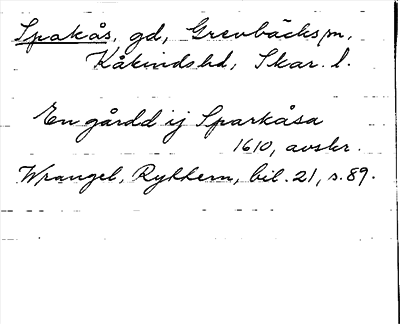 Spakås, gd, Grevbäcks sn,
Kåkinds hd, Skar. l.
En gårdd ij Sparkåsa
1610, avskr.
Wrangel, Rytthern, bil. 21, s. 89.